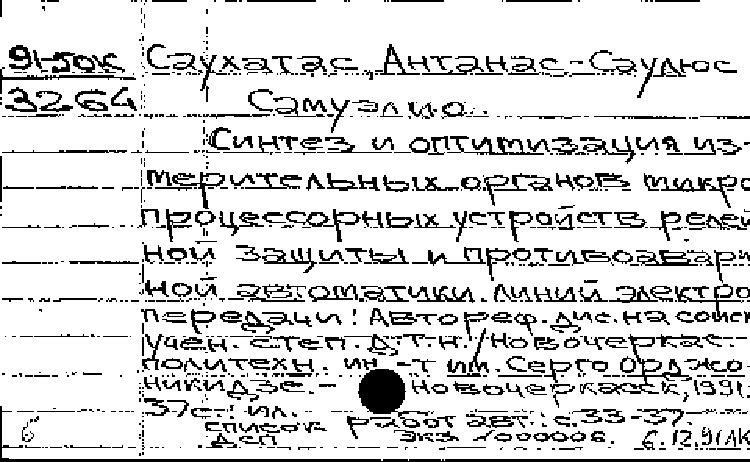 91-5ОК Саухатас, Антанас-Саулюс
3264 Самуэлио.
Синтез и оптимизация из-
мерительных органов микро
процессорных устройств релей
ной защиты и противоавари
ной автоматики линий электро
передачи: Автореф. дис. на соиск
учен. степ. д.т.н. / Новочеркас.
политехн. ин-т им. Серго Орджо
никидзе. - Новочеркасск, 1991.
37с.: ил.
список работ авт.: с.33-37.
ДСП экз
6